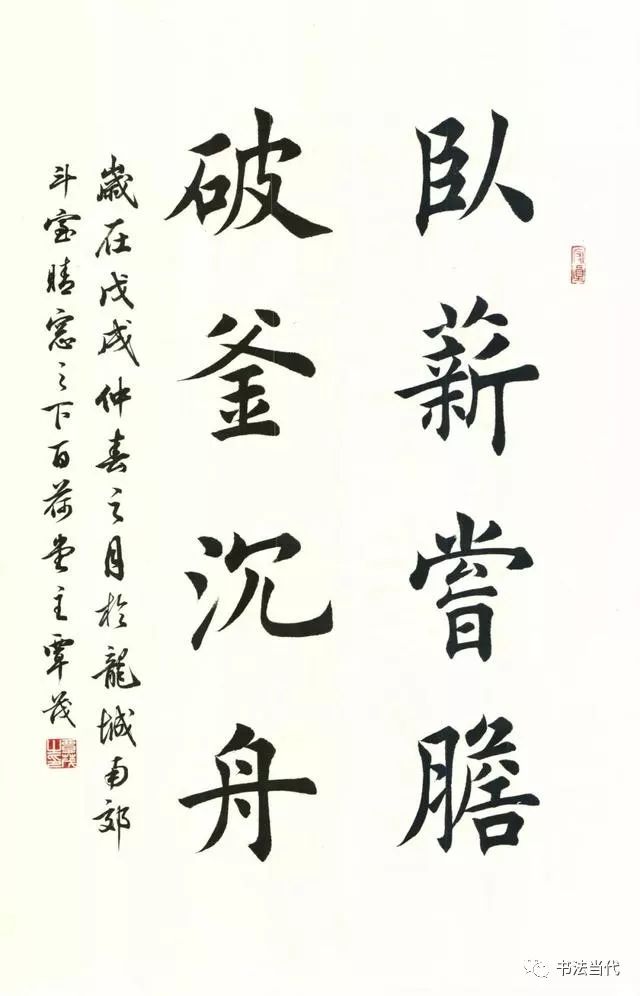 臥薪嘗膽
破釜沉舟
歲在戊戌仲春之月於龍城南郊
斗室晴窓之下百荷堂主覃茂
书法当代